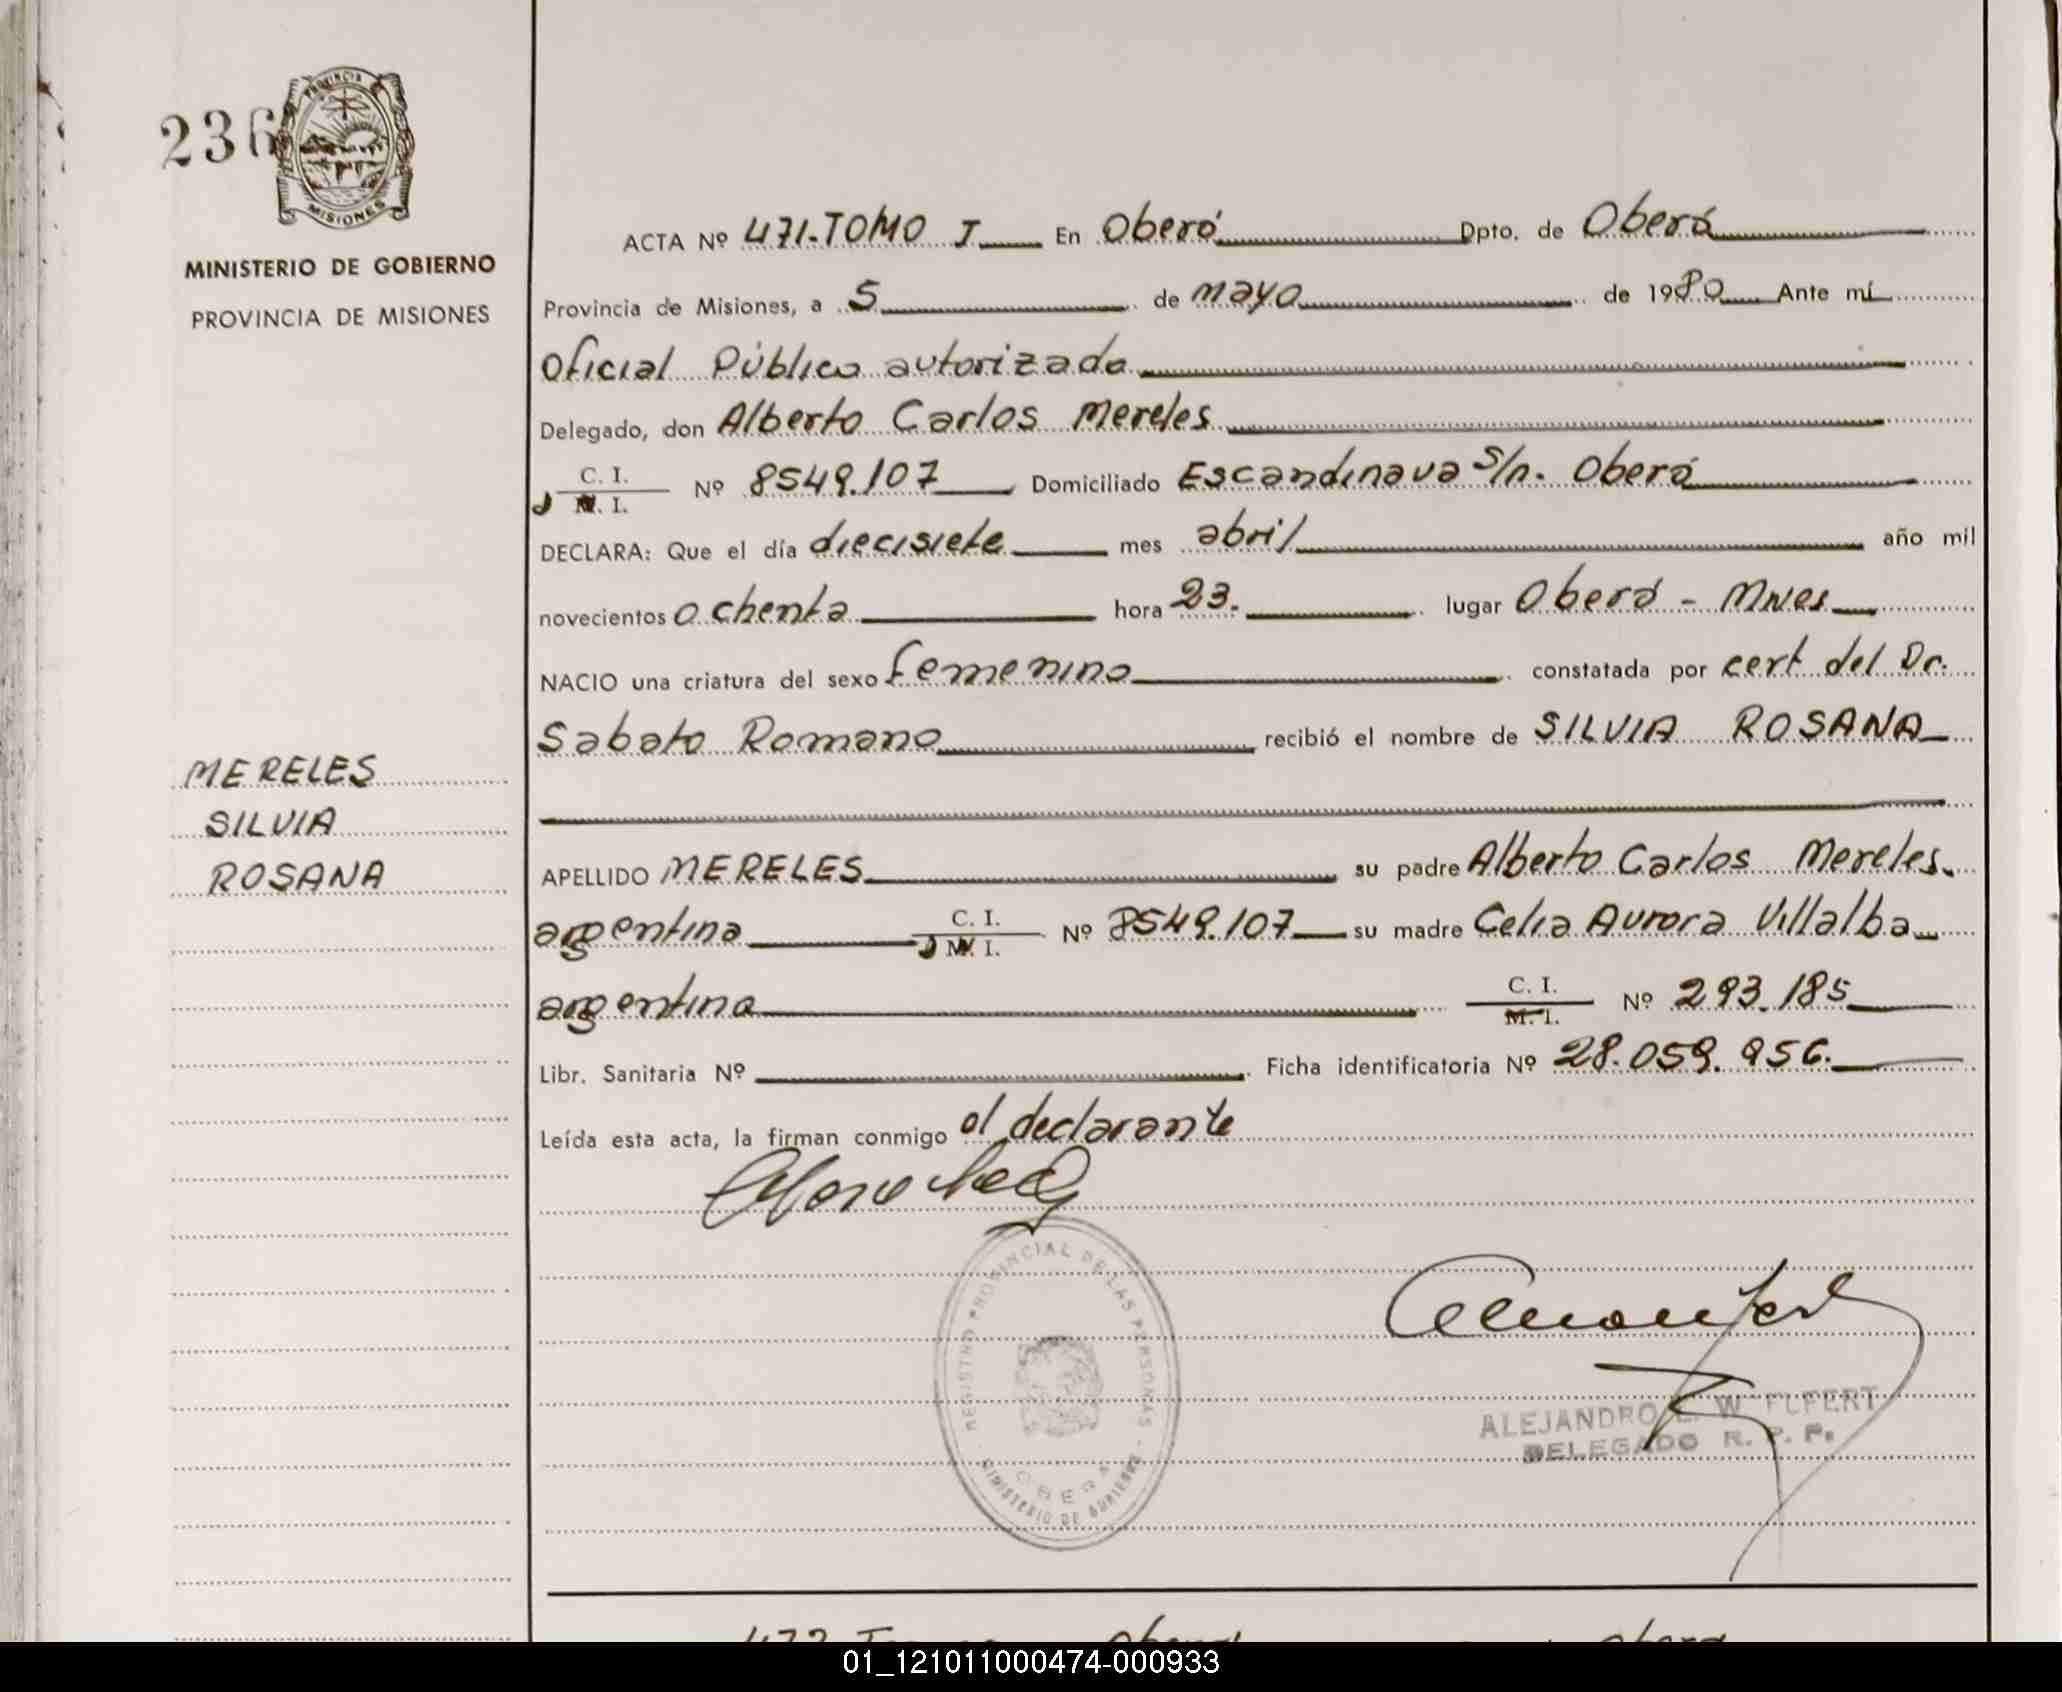 236
PROVINCIA
MISIONES
MINISTERIO DE GOBIERNO
PROVINCIA DE MISIONES
ACTA Nº 471-TOMO I En Oberá Dpto. de Oberá
Provincia de Misiones, a 5 de mayo de 1980 Ante mí
Oficial Público autorizado
Delegado, don Alberto Carlos Mereles
C. I.
M. I. Nº 8549.107 Domiciliado Escandinava s/n. Oberá
DECLARA: Que el día diecisiete mes abril año mil
novecientos ochenta hora 23. lugar Oberá - Mnes
NACIO una criatura del sexo femenino constatada por cert del Dr.
Sabato Romano recibió el nombre de SILVIA ROSANA
MERELES
SILVIA
ROSANA
APELLIDO MERELES su padre Alberto Carlos Mereles
argentino C. I. M. I. Nº 8549.107 su madre Celia Aurora Villalba
argentina C. I. M. I. Nº 293.185
Libr. Sanitaria Nº Ficha identificatoria Nº 28.059.956.
Leída esta acta, la firman conmigo el declarante
REGISTRO PROVINCIAL DE LAS PERSONAS
OBERA
MINISTERIO DE GOBIERNO
ALEJANDRO W
DELEGADO R. P. P.
472 Oberá Oberá
01_121011000474-000933